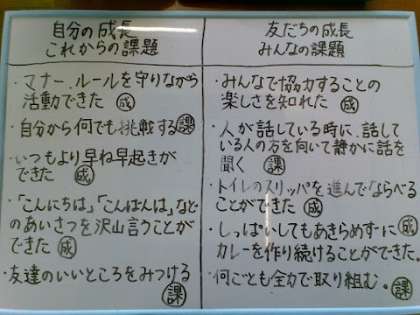 自分の成長
これからの課題
・マナー、ルールを守りながら
活動できた 成
・自分から何でも挑戦する 課
・いつもより早ね早起きが
できた 成
・「こんにちは」「こんばんは」など
のあいさつを沢山言うことが
できた 成
・友達のいいところをみつける
課
友だちの成長
みんなの課題
・みんなで協力することの
楽しさを知れた 成
・人が話している時に、話して
いる人の方を向いて静かに話を
聞く 課
・トイレのスリッパを進んでならべる
ことができた 成
・しっぱいしてもあきらめずに 成
カレーを作り続けることができた。
・何ごとも全力で取り組む。 課